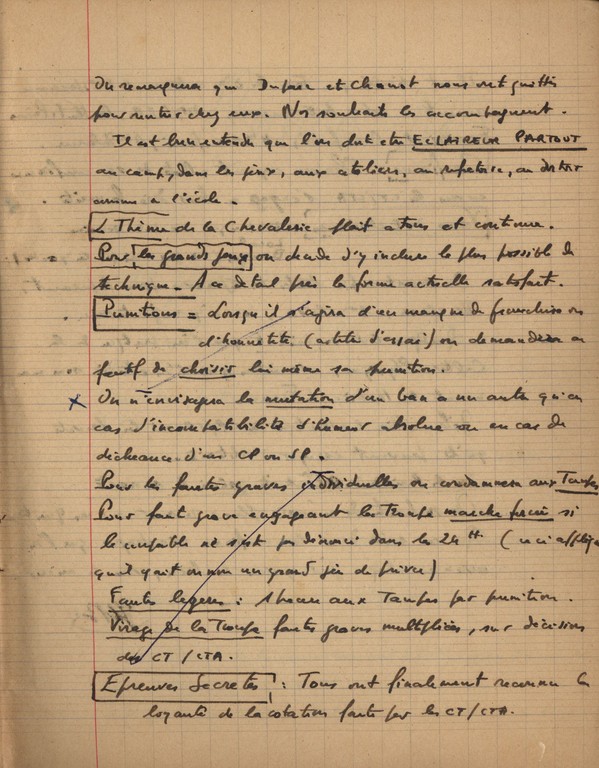 On remarquera que Dufour et Chanot nous ont quittés
pour rentrer chez eux. Nos souhaits les accompagnent.
Il est bien entendu que l'on doit être ECLAIREUR PARTOUT
au camp, dans les jeux, aux ateliers, au refectoire, au dortoir
comme a l'école.
Le Thème de la Chevalerie plait a tous et continue.
Pour les grands jeux on decide d'y inclure le plus possible de
technique. A ce detail près la forme actuelle satisfait.
Punitions = Lorsqu'il s'agira d'un manque de franchise ou
d'honnetete on demandera au
fautif de choisir lui même sa punition.
x On n'envisagera la mutation d'un ban a un autre qu'en
cas d'incompatibilité d'humeur absolue ou en cas de
décheance d'un CP ou SP.
Pour les fautes graves individuelles on condamnera aux Tampes
Pour faute grave engageant la troupe marche forcée si
le coupable ne s'est pas dénoncé dans les 24 H (ceci appliqué
qu'il y ait ou non un grand jeu de prévu)
Fautes legeres : aux Tampes par punition.
Virage de la Troupe fautes graves multipliées, sur décision
des CT / CTA.
Epreuves Secretes : Tous ont finalement reconnu la
loyauté de la cotation faite par les CT / CTA.